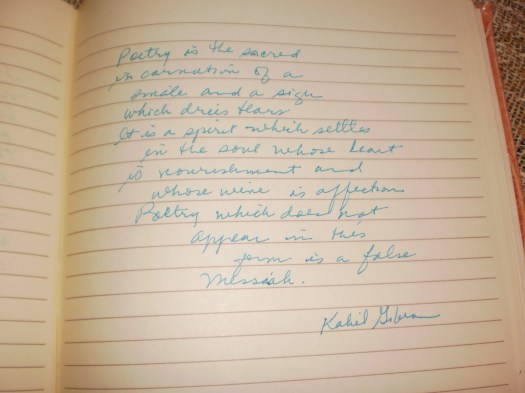 Poetry is the sacred
incarnation of a
smile and a sigh
which dries tears
It is a spirit which settles
in the soul whose heart
is nourishment and
whose wine is affection
Poetry which does not
appear in this
form is a false
Messiah.
Kahil Gibran